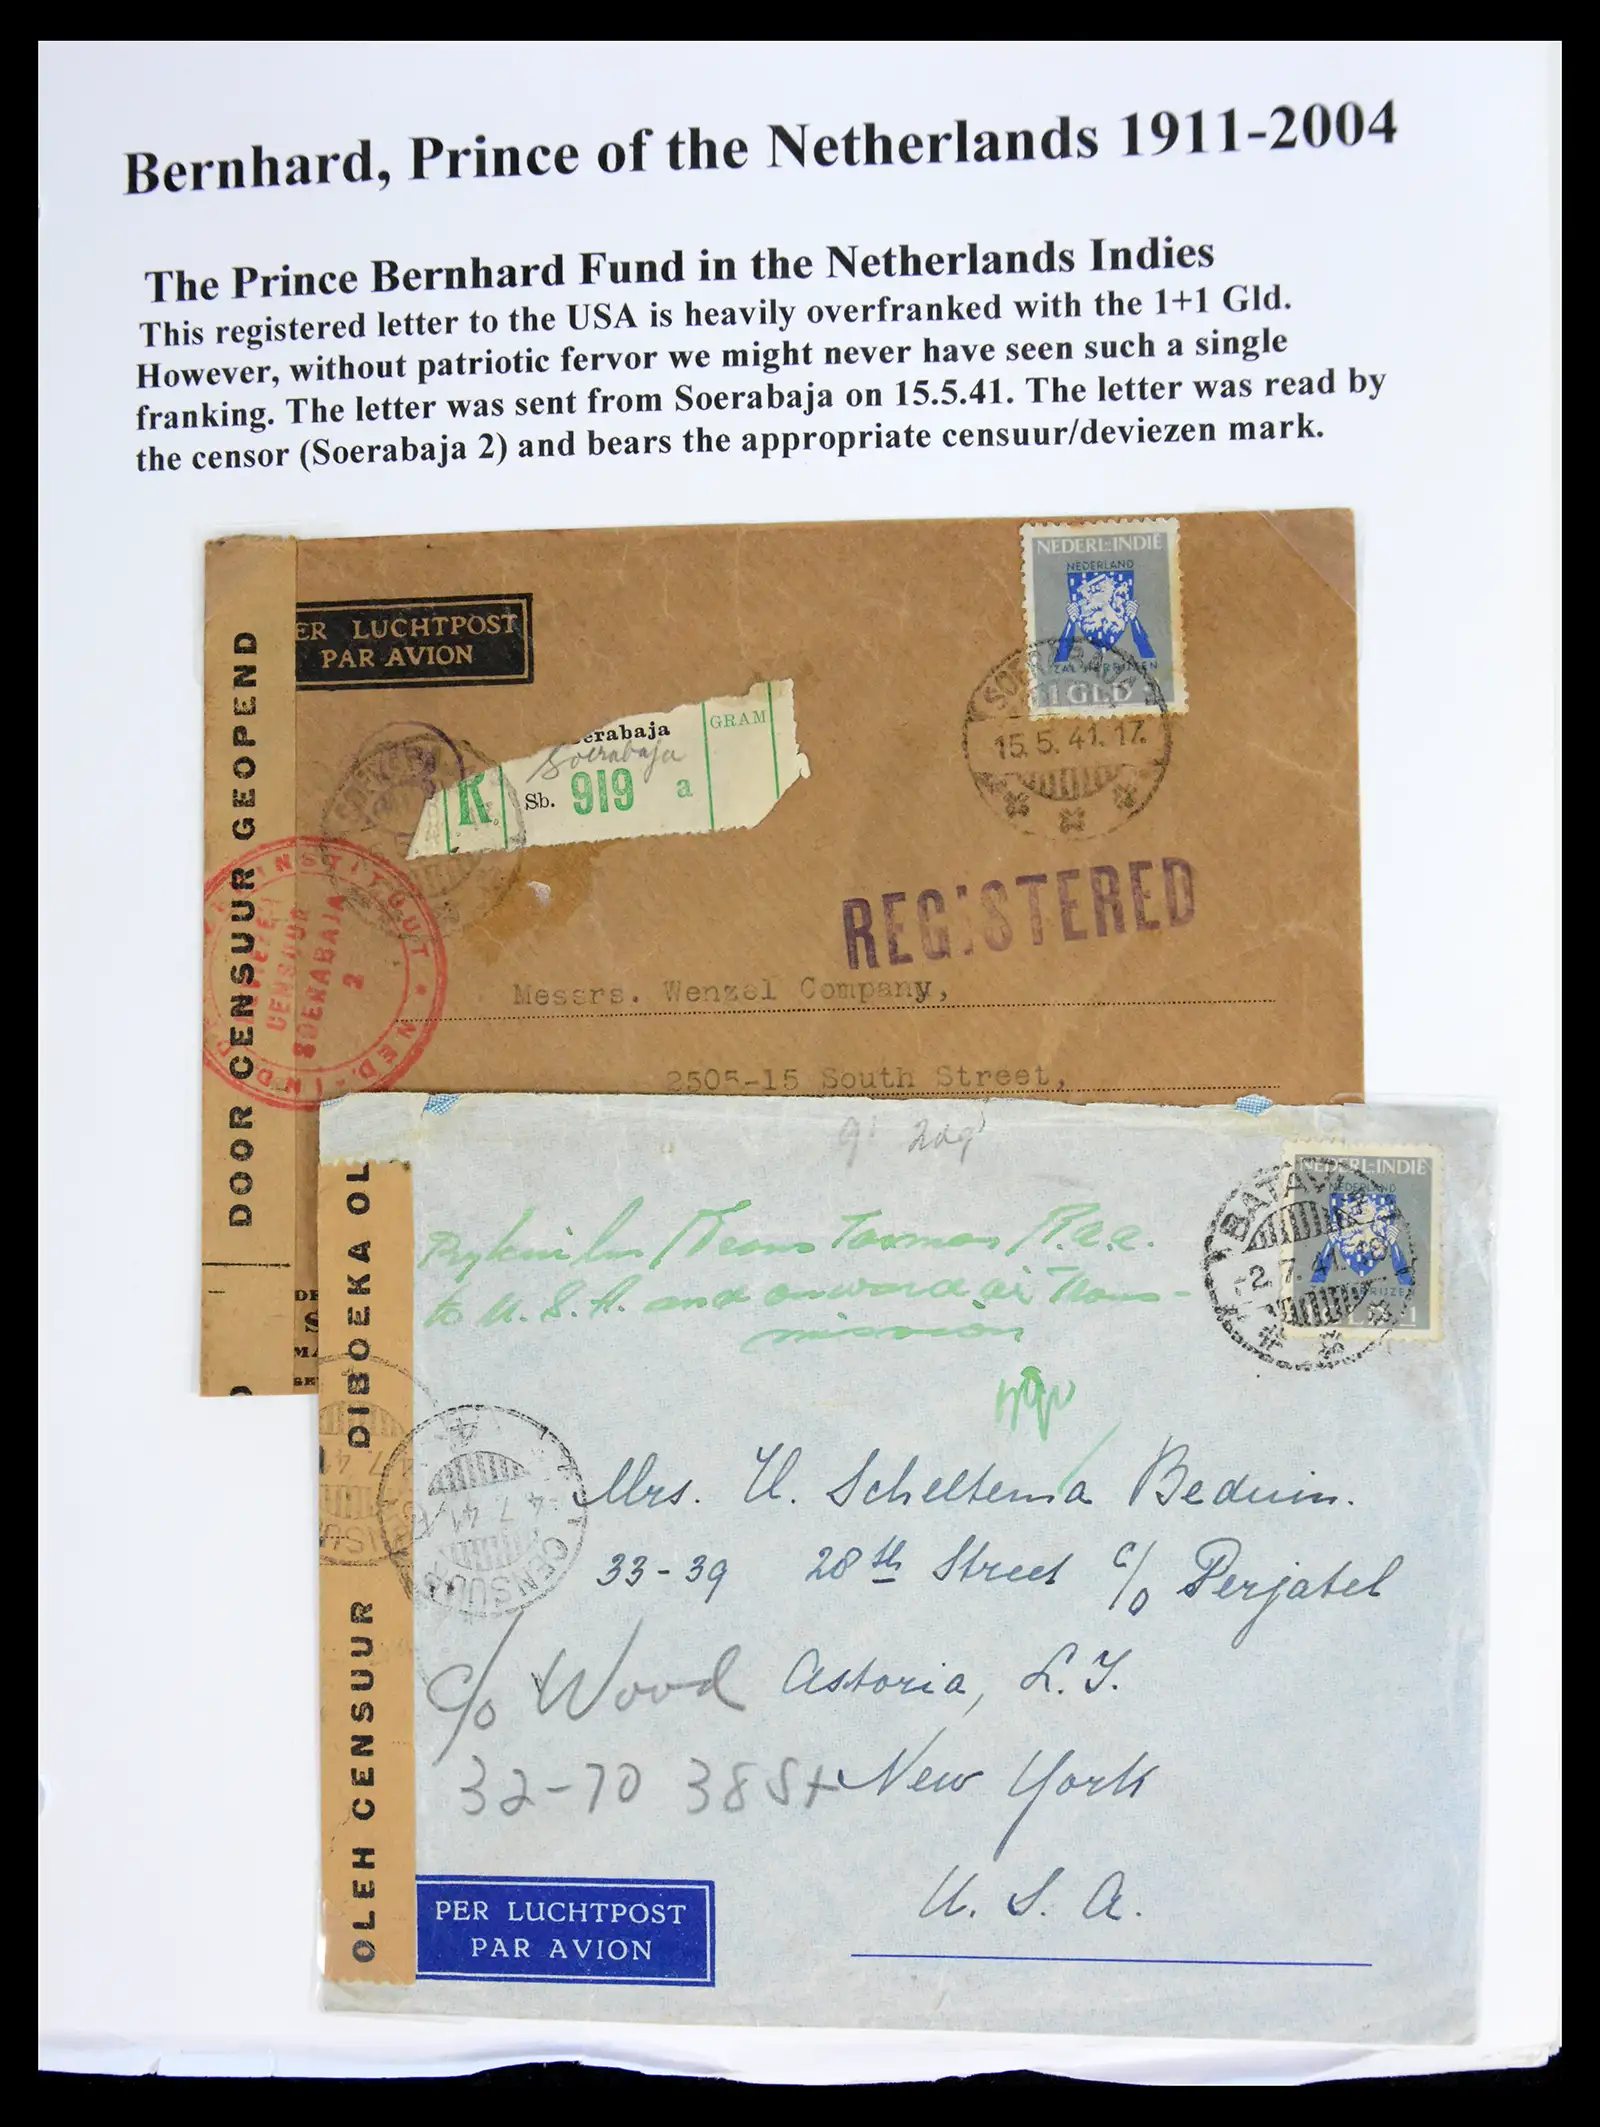 Bernhard, Prince of the Netherlands 1911-2004
The Prince Bernhard Fund in the Netherlands Indies
This registered letter to the USA is heavily overfranked with the 1+1 Gld.
However, without patriotic fervor we might never have seen such a single
franking. The letter was sent from Soerabaja on 15.5.41. The letter was read by
the censor (Soerabaja 2) and bears the appropriate censuur/deviezen mark.
NEDERL:INDIË
NEDERLAND
1 GLD
SOERABAJA
15.5.41.17.
ER LUCHTPOST
PAR AVION
DOOR CENSUUR GEOPEND
erabaja
Soerabaja
GRAM
R
Sb. 919 a
INSTITUUT * NED.-IND
CENSUUR
SOERABAJA
2
REGISTERED
Messrs. Wenzel Company,
2505-15 South Street,
DIBOEKA OL
OLEH CENSUUR
NEDERL:INDIË
NEDERLAND
BATAVIA
2.7.41
to U.S.A. and onward air Trans-
mission
CENSUUR
4.7.41
Mrs. U. Scheltema Beduin.
33-39 28th Street c/o Perjatel
c/o Wood
Astoria, L.I.
32-70 38 St
New York
U. S. A.
PER LUCHTPOST
PAR AVION